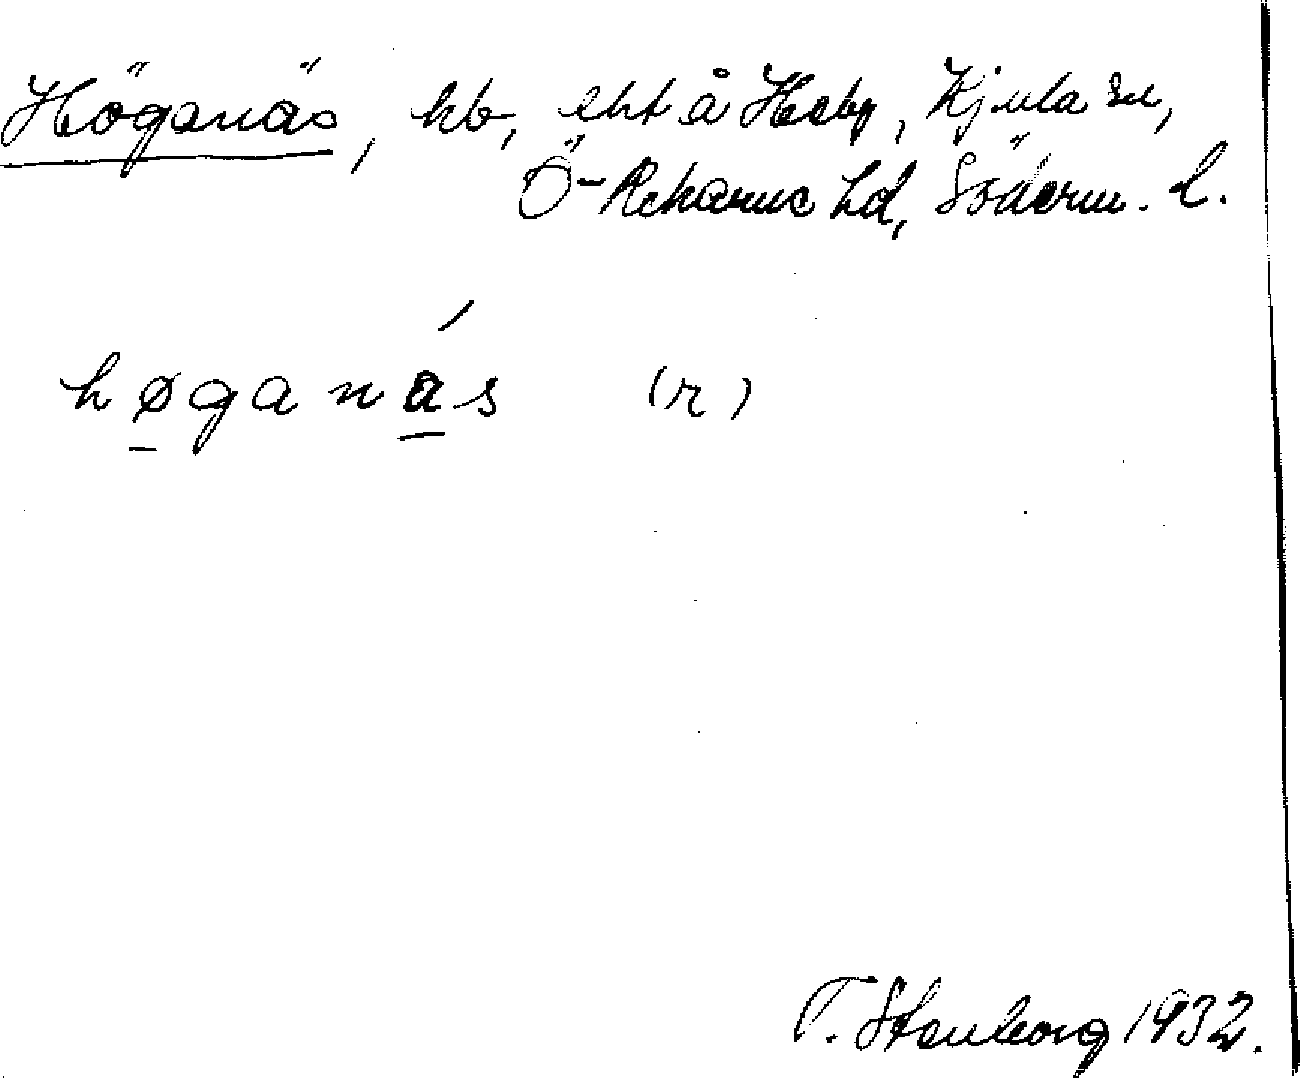 Höganäs, hb, eht å Heby, Kjula sn,
Ö-Rekarne hd, Söderm. l.
høganás (r)
T. Stenborg 1932.